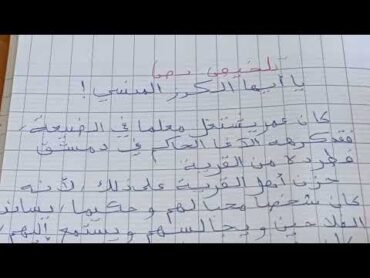 تلخيص نص
يا أيها الكرز المنسي !
كان عمر يشتغل معلما في الضيعة،
فكرهه الآغا الحاكم في دمشق
فطرد من القرية
حزن أهل القرية على ذلك، لأنه
كان شخصا محبا لهم و حكيما، يساند
الفلاحين و يجالسهم و يستمع إليهم،